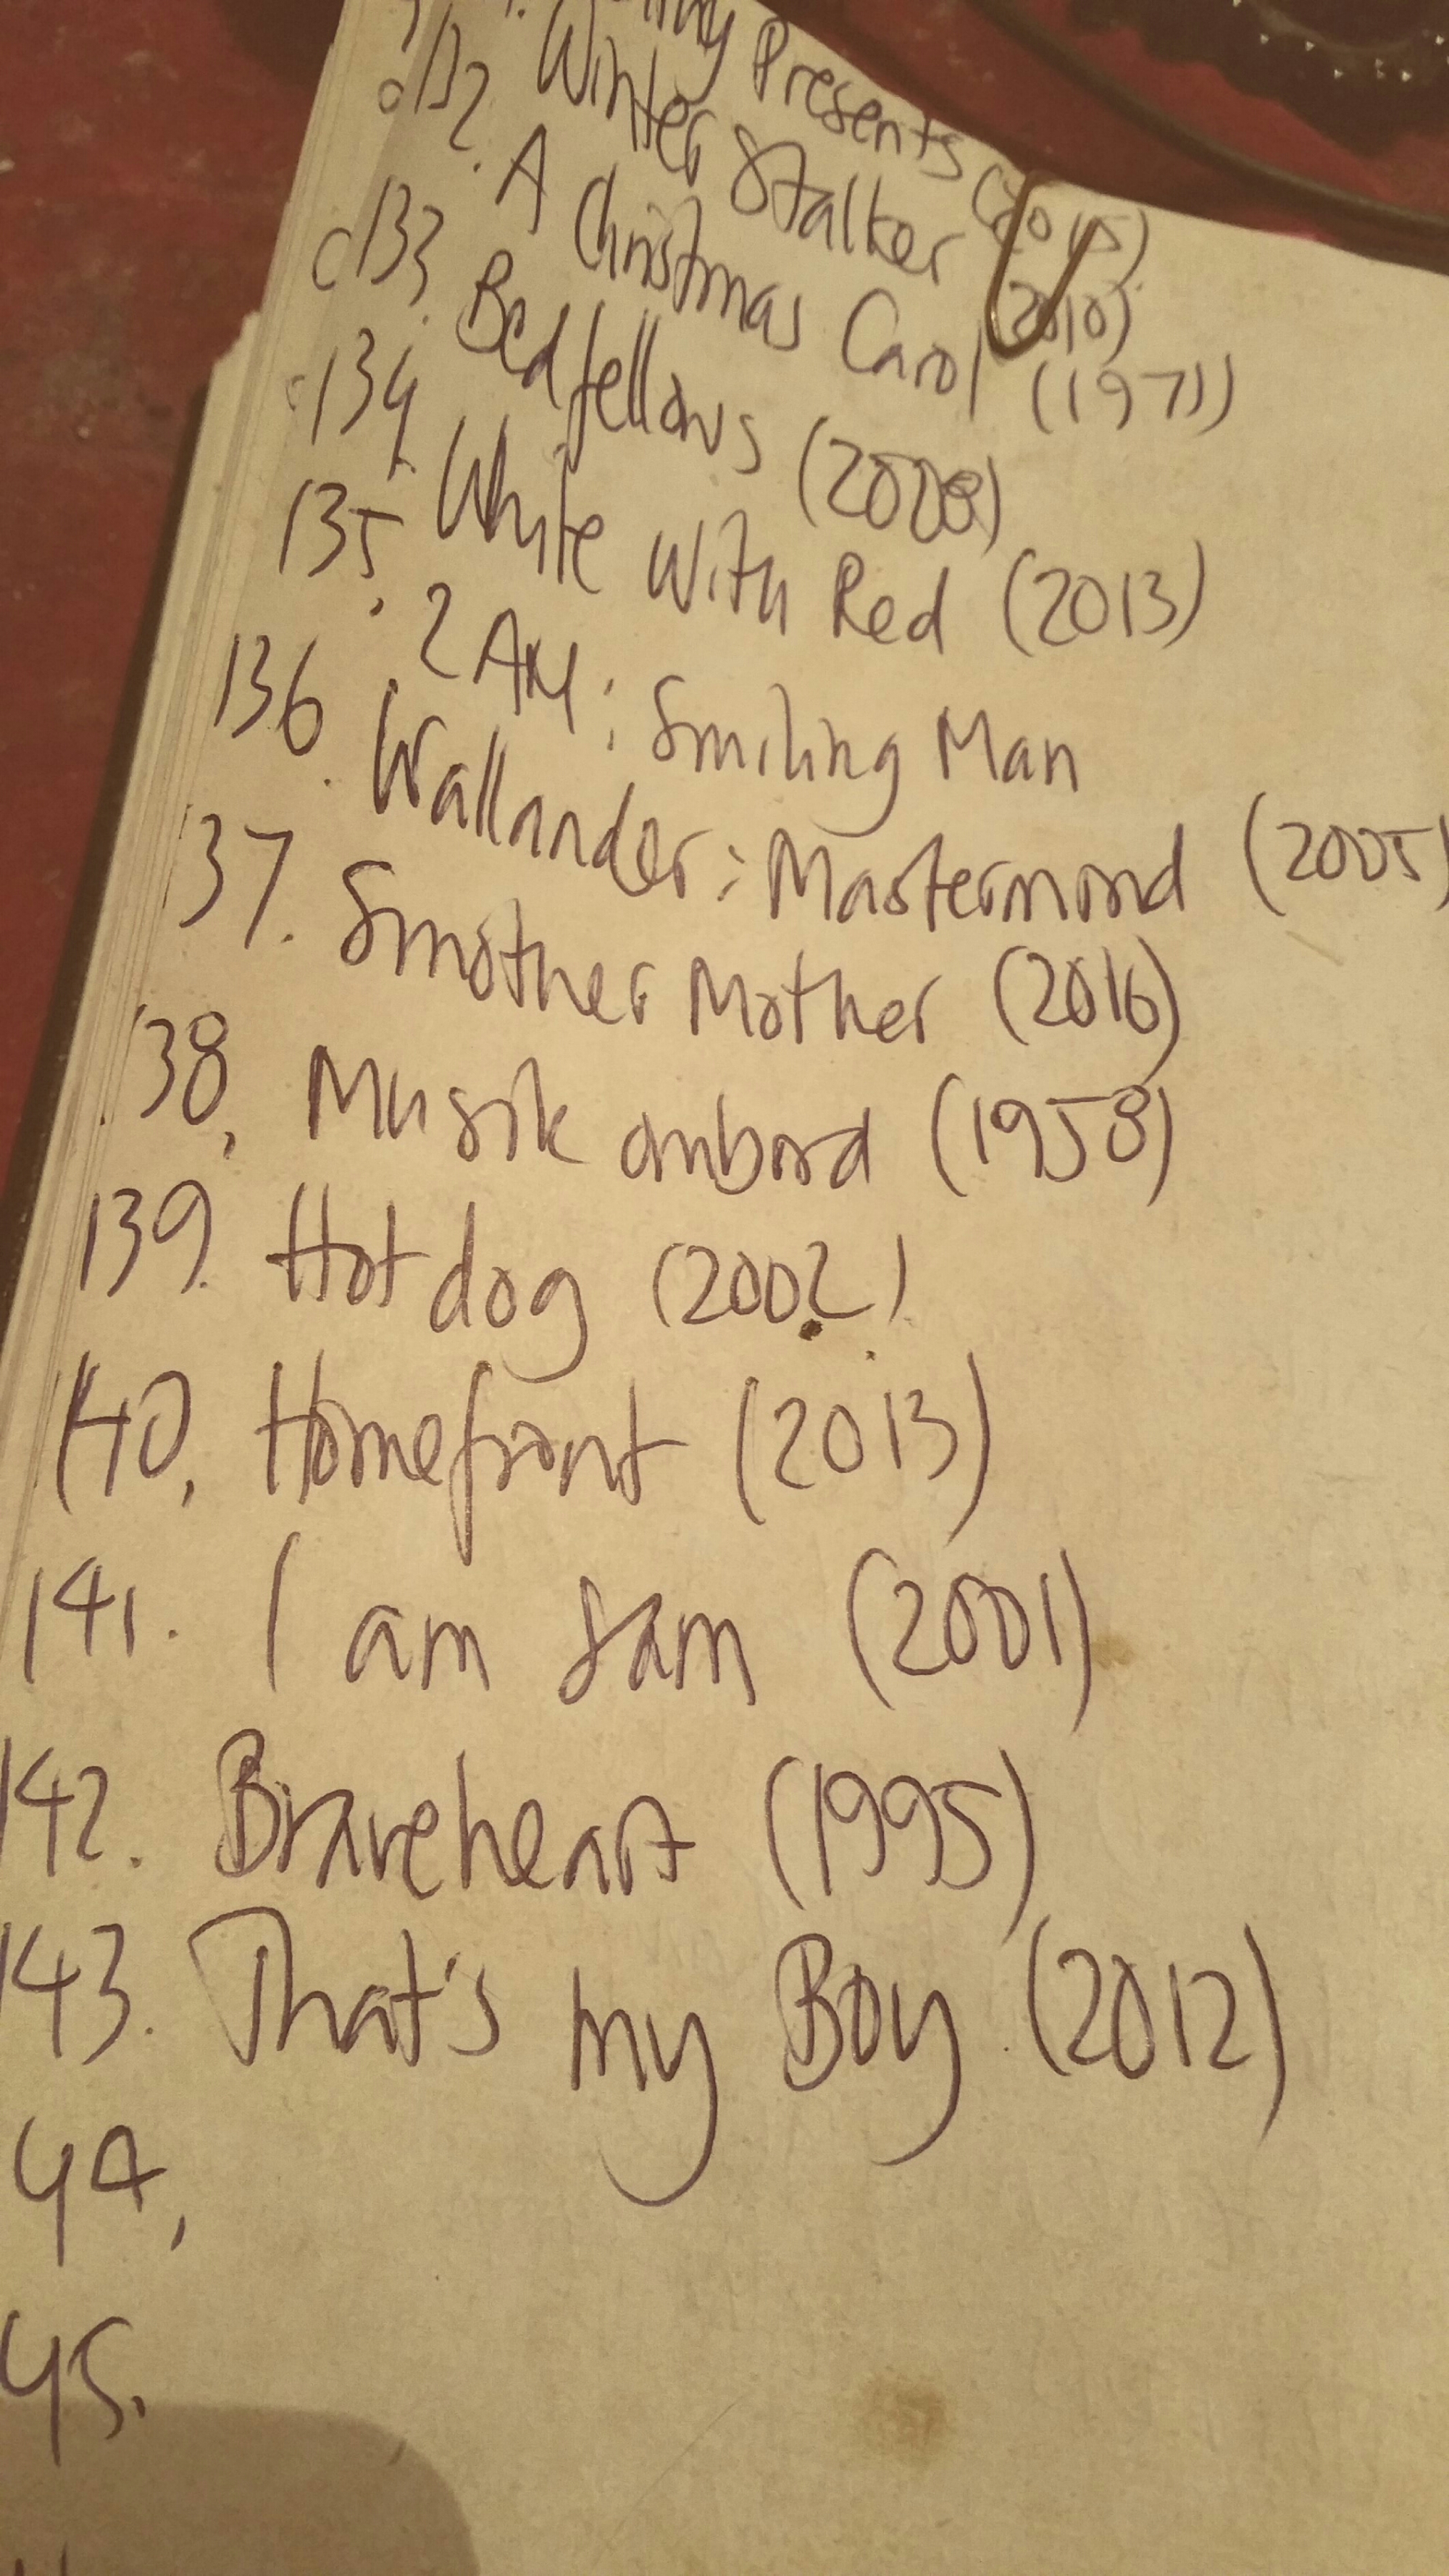 Presents (2015)
Winter Stalker (2010)
132. A Christmas Carol (1971)
133. Bedfellows (2008)
134. White With Red (2013)
135. 2 AM: Smiling Man
136. Wallander: Mastermind (2005)
137. Smother Mother (2016)
138. Musik ombord (1958)
139. Hotdog (200?)
140. Homefront (2013)
141. I am Sam (2001)
142. Braveheart (1995)
143. That's my Boy (2012)
44.
45.